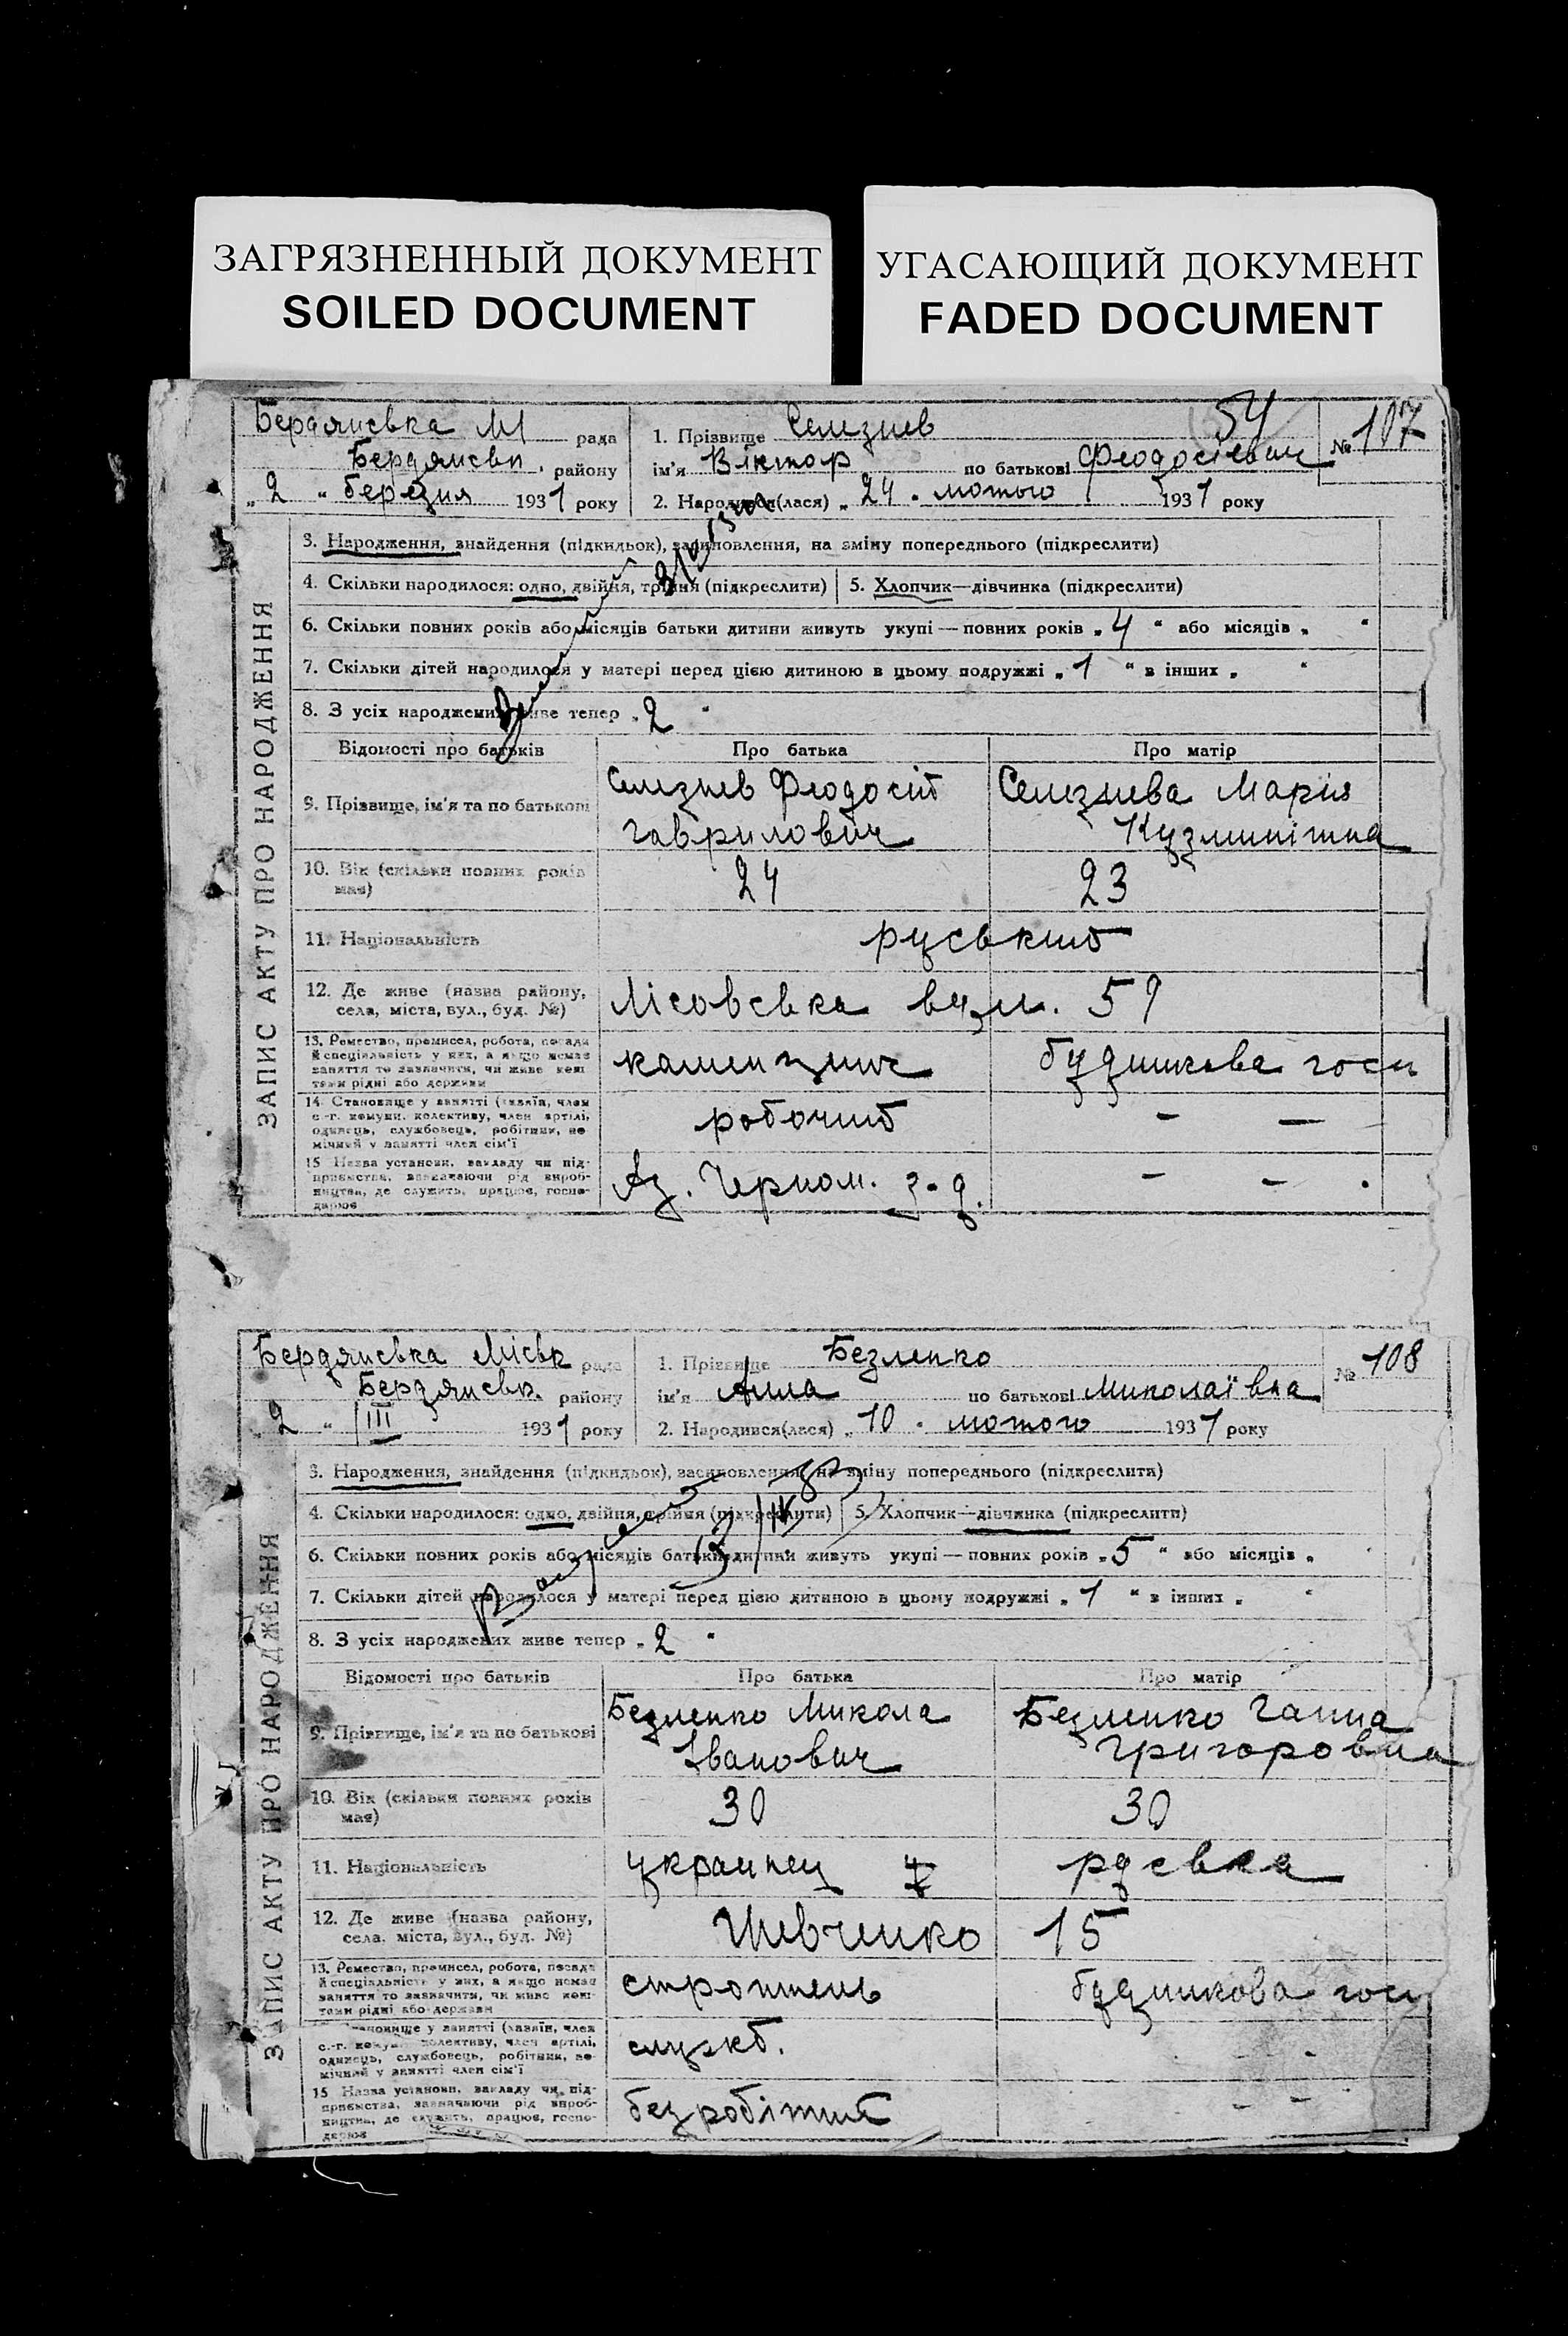 ЗАГРЯЗНЕННЫЙ ДОКУМЕНТ
SOILED DOCUMENT
УГАСАЮЩИЙ ДОКУМЕНТ
FADED DOCUMENT
54
ЗАПИС АКТУ ПРО НАРОДЖЕННЯ
Бердянська М рада
Бердянськ. району
„2“ березня 1931 року
1. Прізвище Селезнев
ім'я Віктор по батькові Феодосієвич
№ 107
2. Народився(лася) „24“ лютого 1931 року
3. Народження, знайдення (підкидьок), засиновлення, на зміну попереднього (підкреслити)
4. Скільки народилося: одно, двійня, трійня (підкреслити)
5. Хлопчик—дівчинка (підкреслити)
6. Скільки повних років або місяців батьки дитини живуть укупі — повних років „4“ або місяців „ “
7. Скільки дітей народилося у матері перед цією дитиною в цьому подружжі „1“ в інших „ “
8. З усіх народжених живе тепер „2“
Відомості про батьків Про батька Про матір
9. Прізвище, ім'я та по батькові
Селезнев Феодосій
Гаврилович
Селезнева Марія
10. Вік (скільки повних років
має)
24 23
11. Національність
руський
12. Де живе (назва району,
села, міста, вул., буд. №)
Лісовська вул. 59
13. Ремество, промисел, робота, посада
й спеціальність у них, а якщо немає
заняття то зазначити, чи живе кош-
тами рідні або держави
каменщик будинкова госп
14. Становище у занятті (хазяїн, член
с.-г. комуни, колективу, член артілі,
одинець, службовець, робітник, по-
мічний у занятті член сім'ї
робочий – –
15 Назва установи, закладу чи під-
приємства, зазначаючи рід вироб-
ництва, де служить, працює, госпо-
дарює
Аз. Черном. з-д. – –
ЗАПИС АКТУ ПРО НАРОДЖЕННЯ
Бердянська Міськ рада
Бердянськ. району
2 „ III 1931 року
1. Прізвище Безленко
ім'я Анна по батькові Миколаївна
№ 108
2. Народився(лася) „10“ лютого 1931 року
3. Народження, знайдення (підкидьок), засиновлення, на зміну попереднього (підкреслити)
4. Скільки народилося: одно, двійня, трійня (підкреслити)
5. Хлопчик—дівчинка (підкреслити)
6. Скільки повних років або місяців батьки дитини живуть укупі — повних років „5“ або місяців „
7. Скільки дітей народилося у матері перед цією дитиною в цьому подружжі „1“ в інших „ “
8. З усіх народжених живе тепер „2“
Відомості про батьків Про батька Про матір
9. Прізвище, ім'я та по батькові
Безленко Микола
Іванович
Безленко Ганна
Григоровна
10. Вік (скільки повних років
має)
30 30
11. Національність
украинец руська
12. Де живе (назва району,
села, міста, вул., буд. №)
Шевченко 15
13. Ремество, промисел, робота, посада
й спеціальність у них, а якщо немає
заняття то зазначити, чи живе кош-
тами рідні або держави
строитель будинкова госп
становище у занятті (хазяїн, член
с.-г. комуни, колективу, член артілі,
одинець, службовець, робітник, по-
мічний у занятті член сім'ї
служб. - -
15 Назва установи, закладу чи під-
приємства, зазначаючи рід вироб-
ництва, де служить, працює, госпо-
дарює
безробітний - -